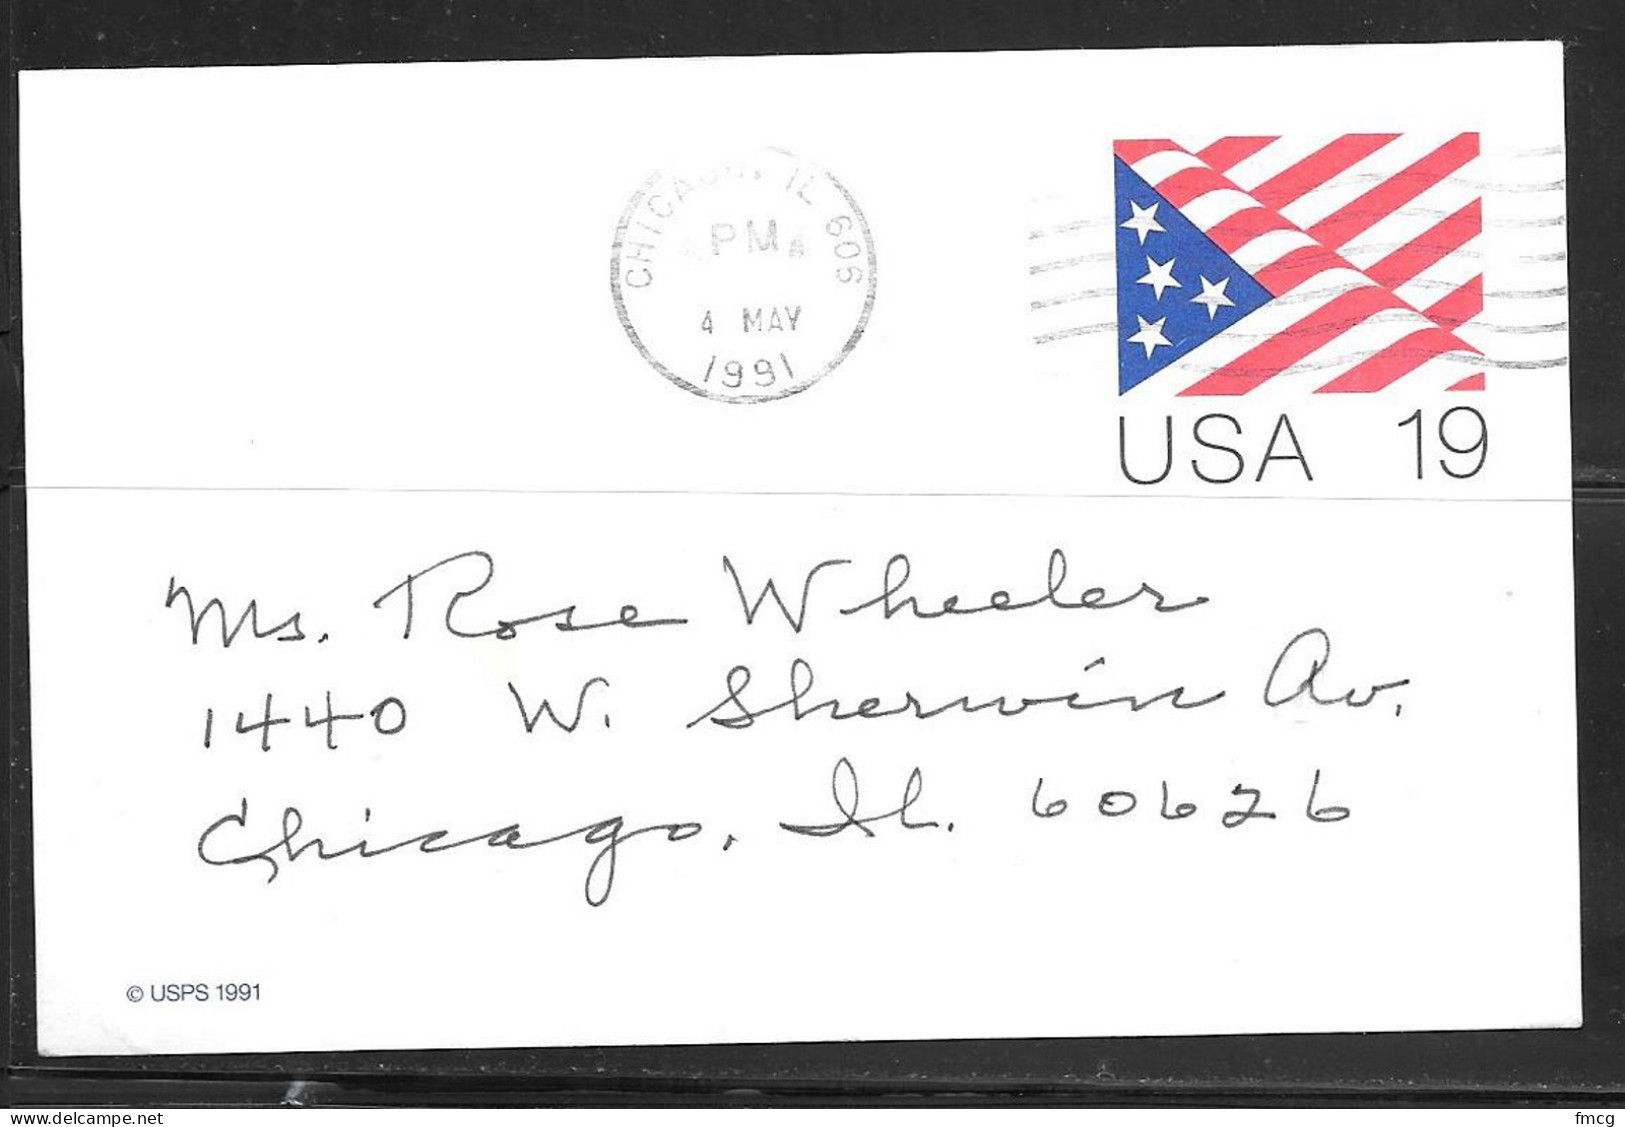 CHICAGO, IL 606
PM
4 MAY
1991
USA 19
Ms. Rose Wheeler
1440 W. Sherwin Av.
Chicago, Il. 60626
© USPS 1991
delcampe.net
fmcg